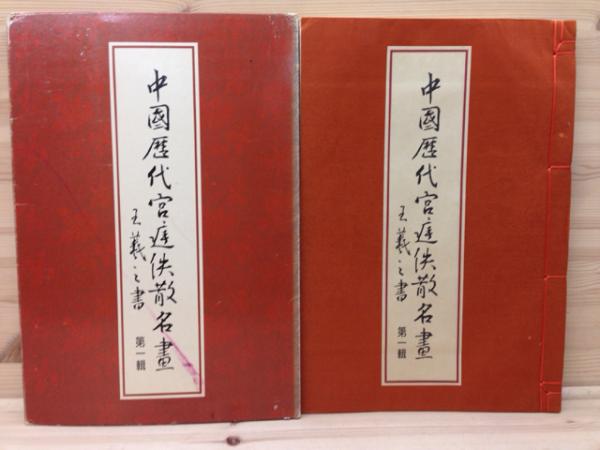 中國歷代宮廷佚散名畫
王羲之書
第一輯
中國歷代宮廷佚散名畫
王羲之書
第一輯